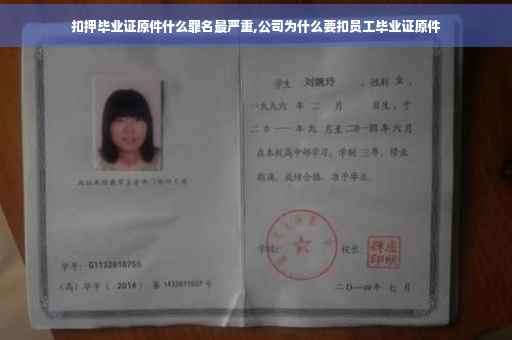 扣押毕业证原件什么罪名最严重,公司为什么要扣员工毕业证原件
学生 刘婉玲 ，性别 女 ，
一九九六 年 二 月 日生，于
二〇一一年 九 月至二〇一四年 六 月
在本校高中部学习，学制 三年，修业
期满，成绩合格，准予毕业。
学号： G1132010755
学校： 校长：
（高）毕字（ 2014 ）第 1432011007 号
二〇一四年 七 月